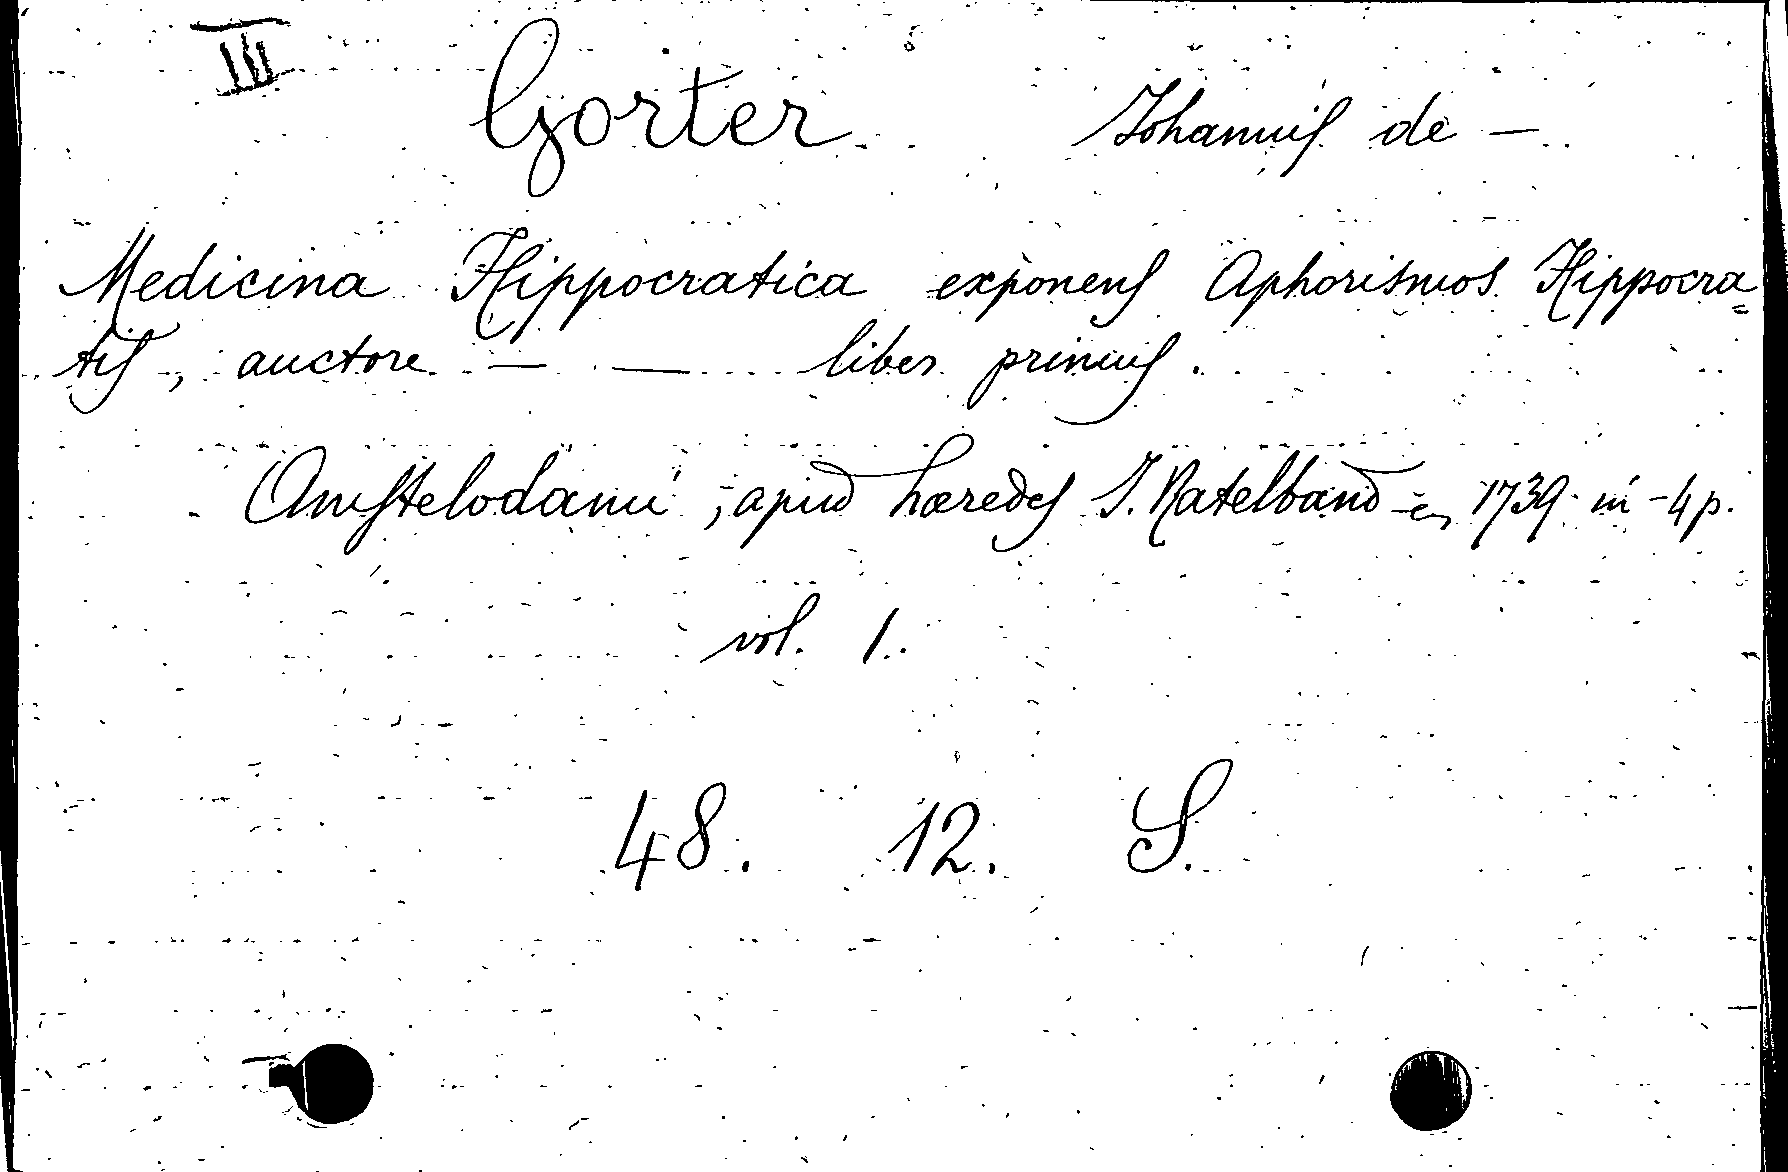 III
Gorter Johannis de —
Medicina Hippocratica exponens Aphorismos Hippocra=
tis, auctore — — liber primus.
Amstelodami, apud hæredes J. Ratelband 1739 in-4p.
vol. 1.
48. 12. S.